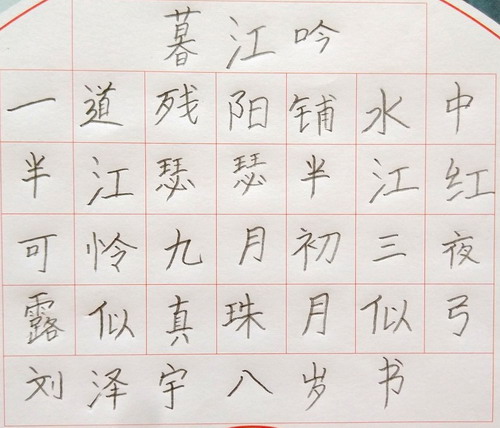 暮江吟
一道残阳铺水中
半江瑟瑟半江红
可怜九月初三夜
露似真珠月似弓
刘泽宇八岁书